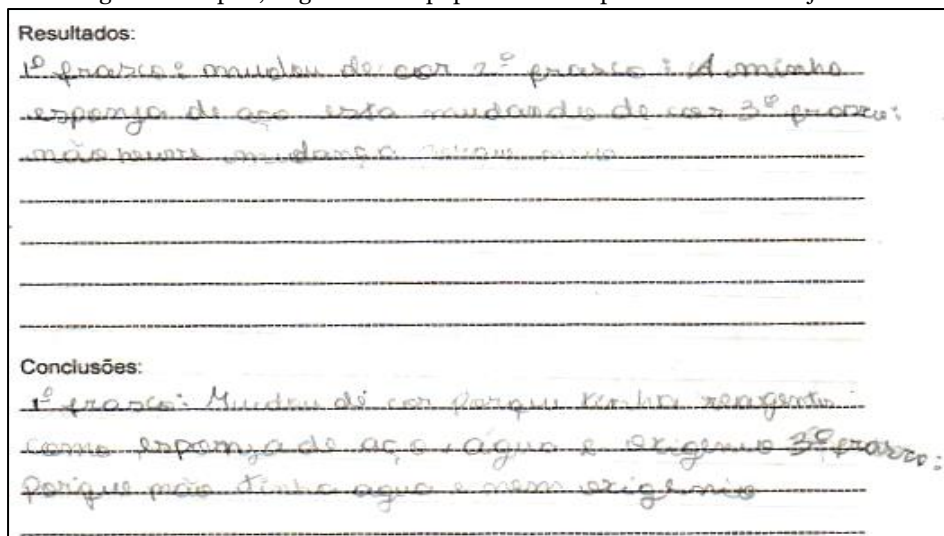 Resultados:
1º frasco: mudou de cor 2º frasco: A minha
esponja de aço esta mudando de cor 3º frasco:
não houve mudança
Conclusões:
1º frasco: Mudou de cor porque tinha reagente
como esponja de aço, agua e oxigenio 3º frasco:
Porque não tinha agua e nem oxigênio